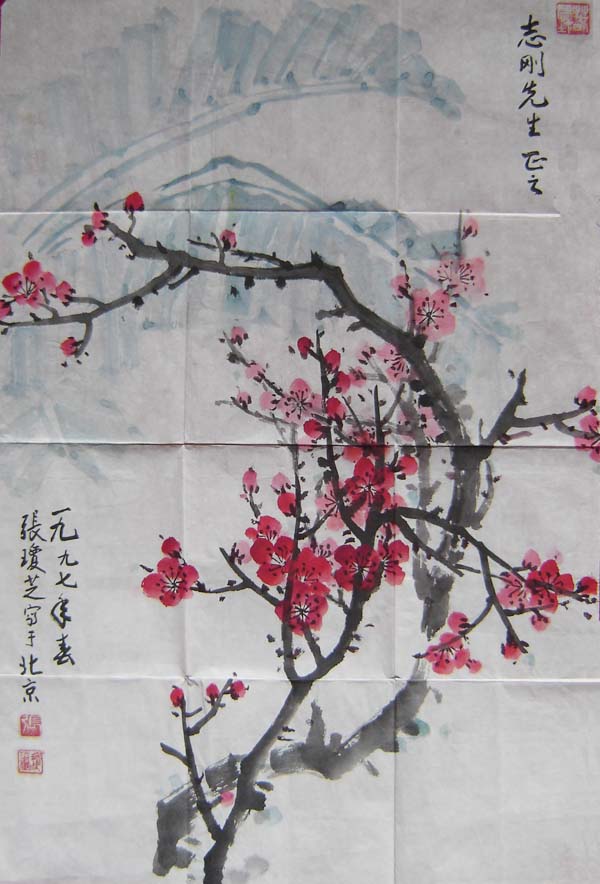 志刚先生正之
一九九七年春
張瓊芝写于北京